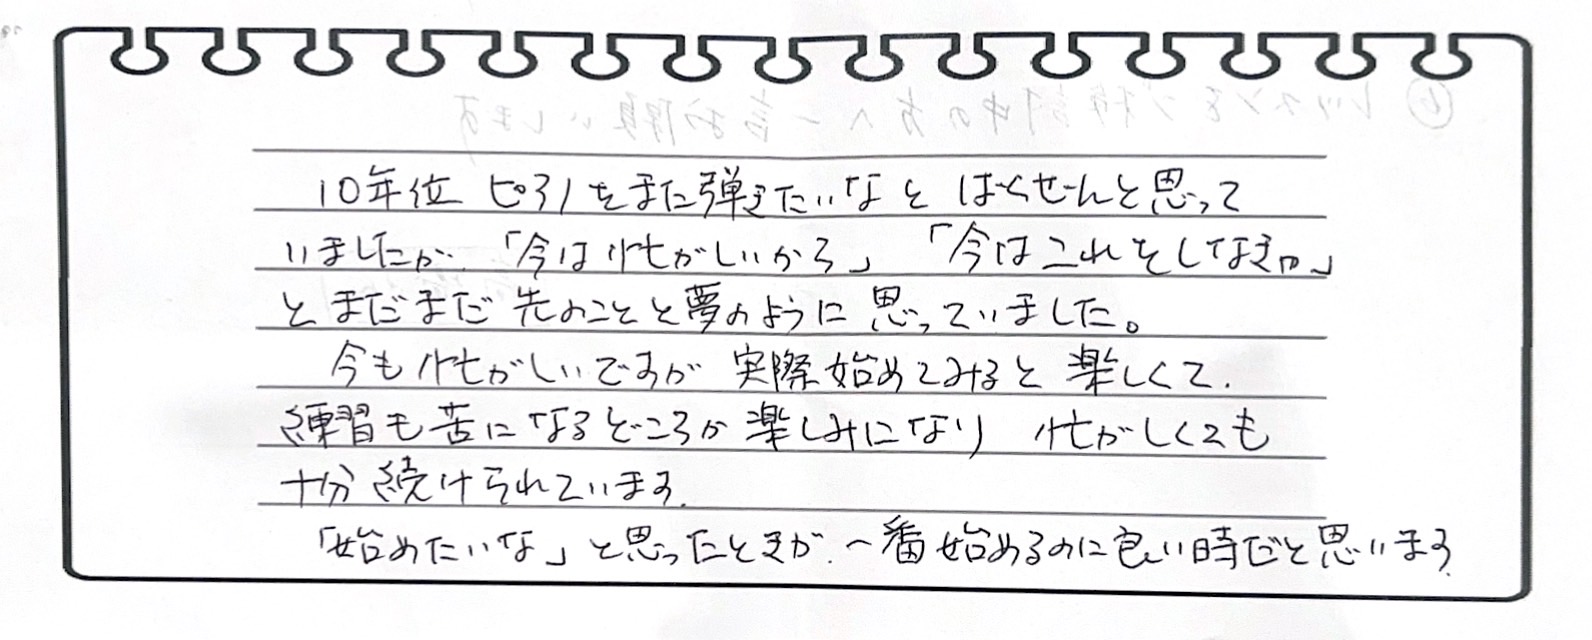 10年位 ピアノをまた弾きたいなと ばくぜんと思って
いましたが、「今は忙がしいから」 「今はこれをしなきゃ」
とまだまだ 先のことと夢のように 思っていました。
今も忙がしいですが 実際始めてみると 楽しくて、
練習も苦になるどころか 楽しみになり 忙がしくても
十分 続けられています。
「始めたいな」と思ったときが、一番始めるのに良い時だと思います